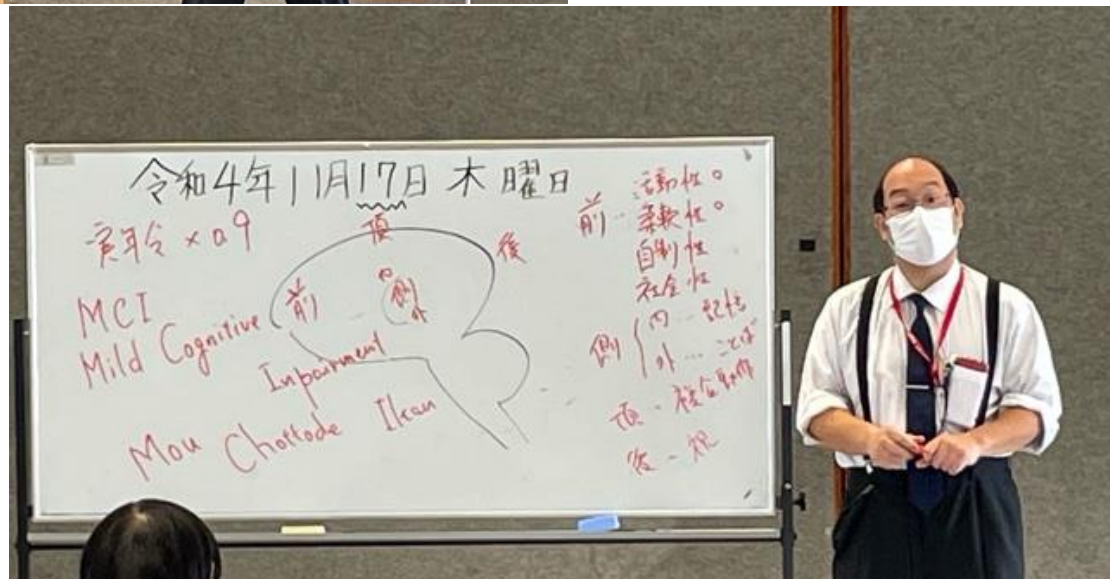 令和4年11月17日 木曜日
実年令×0.9
MCI
Mild Cognitive
Inpairment
Mou Chottode Ikan
頂
後
前
内
側
外
前…活動性。
柔軟性。
自制性
社会性
側 内…記憶
外…ことば
頂-複合動作
後-視